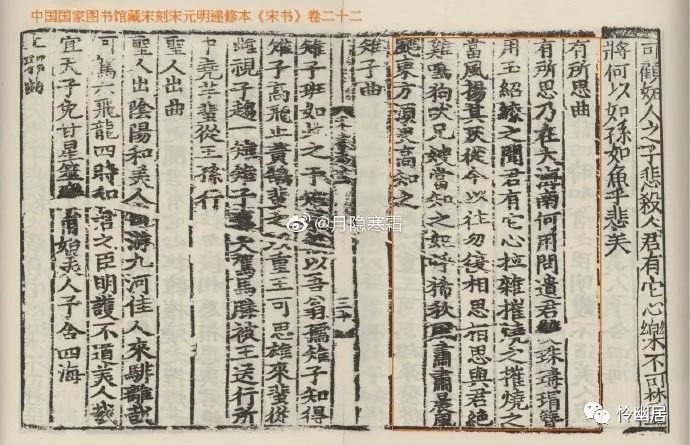 中国国家图书馆藏宋刻宋元明递修本《宋书》卷二十二
可顧如人之子悲殺人君有它心樂不可禁
將何以如孫如魚乎悲矣
有所思曲
有所思乃在大海南何用問遺君珠瑇瑁簪
用玉紹繚之聞君有它心拉雜摧燒之摧燒之
當風揚其灰從今以往勿復相思相思與君絕
雞鳴狗吠兄嫂當知之妃呼狶秋風肅肅晨風
颸東方須臾高知之
雉子曲
三十
雉子班如此之予雉以吾翁孺雉子知得
雉子高飛止黃鵠蜚之重王可思雄來蜚從
雌視子趨一雉雉子車大駕馬滕被王送行所
中堯羊蜚從王孫行
聖人出曲
聖人出陰陽和美人出游九河佳人來騑離哉
何駕六飛龍四時和君之臣明護不道美人哉
宜天子免甘星筮甫始美人子含四海
@月隐寒霜
怜幽居